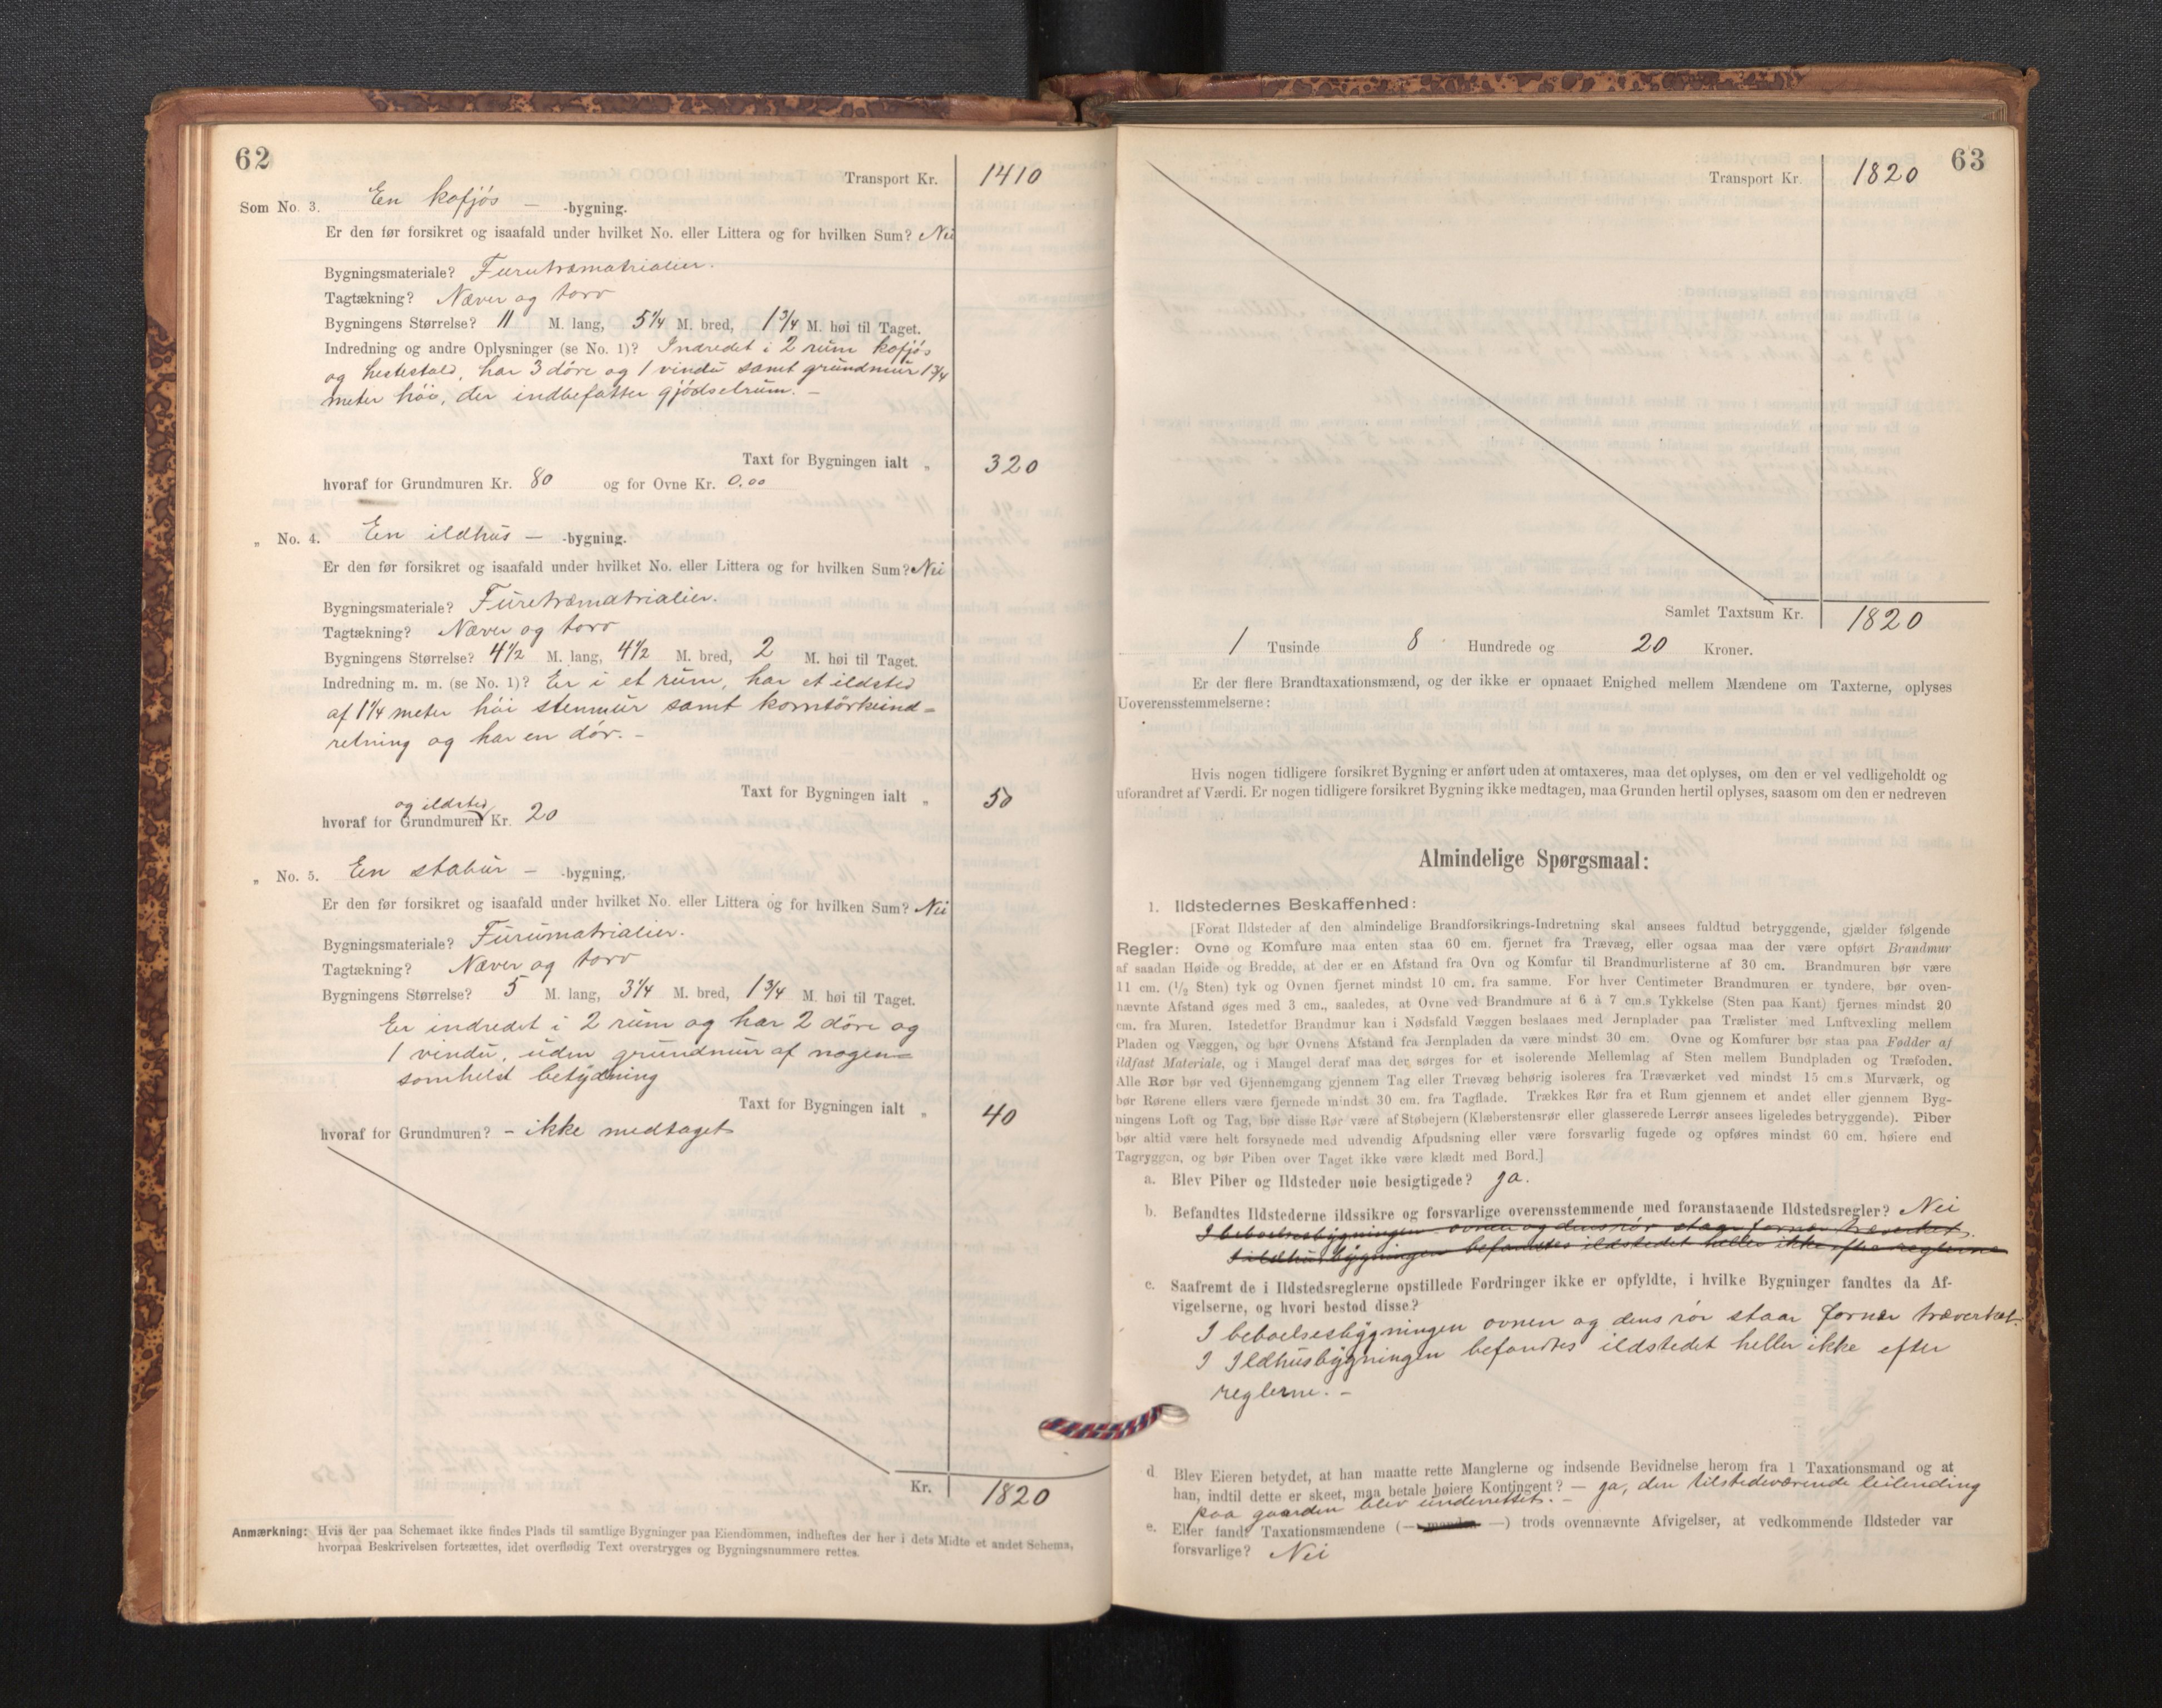 62
Transport Kr. 1410
Som No. 3. En kofjós — -bygning.
Er den før forsikret og isaafald under hvilket No. eller Littera og for hvilken Sum? Nei
Bygningsmateriale? Furutræmatrialier.
Tagtækning? Næver og torv
Bygningens Størrelse? 11 M. lang, 5 1/4 M. bred, 1 3/4 M. høi til Taget.
Indredning og andre Oplysninger (se No. 1)? Indredet i 2 rum kofjós
og hestestald, har 3 döre og 1 vindu samt grundmur 1 3/4
meter höi, der indbefatter gjödselrum. —
Taxt for Bygningen ialt „ 320
hvoraf for Grundmuren Kr. 80 og for Ovne Kr. 0.00
„ No. 4. En ildhus — -bygning.
Er den før forsikret og isaafald under hvilket No. eller Littera og for hvilken Sum? Nei
Bygningsmateriale? Furetræmatrialier.
Tagtækning? Næver og torv
Bygningens Størrelse? 4 1/2 M. lang, 4 1/2 M. bred, 2 M. høi til Taget.
Indredning m. m. (se No. 1)? Er i et rum, har et ildsted
af 1 1/4 meter höi stenmur samt korntörkeind=
retning og har en dör. —
Taxt for Bygningen ialt „ 50
og ildsted
hvoraf for Grundmuren Kr. 20
„ No. 5. En stabur — -bygning.
Er den før forsikret og isaafald under hvilket No. eller Littera og for hvilken Sum? Nei
Bygningsmateriale? Furumatrialier.
Tagtækning? Næver og torv
Bygningens Størrelse? 5 M. lang, 3 1/4 M. bred, 1 3/4 M. høi til Taget.
Er indredet i 2 rum og har 2 döre og
1 vindu, uden grundmur af nogen=
somhelst betydning
Taxt for Bygningen ialt „ 40
hvoraf for Grundmuren? — ikke medtaget
Kr. 1820
Anmærkning: Hvis der paa Schemaet ikke findes Plads til samtlige Bygninger paa Eiendommen, indheftes der her i dets Midte et andet Schema,
hvorpaa Beskrivelsen fortsættes, idet overflødig Text overstryges og Bygningsnummere rettes.
63
Transport Kr. 1820
Samlet Taxtsum Kr. 1820
1 Tusinde 8 Hundrede og 20 Kroner.
Er der flere Brandtaxationsmænd, og der ikke er opnaaet Enighed mellem Mændene om Taxterne, oplyses
Uoverensstemmelserne:
Hvis nogen tidligere forsikret Bygning er anført uden at omtaxeres, maa det oplyses, om den er vel vedligeholdt og
uforandret af Værdi. Er nogen tidligere forsikret Bygning ikke medtagen, maa Grunden hertil oplyses, saasom om den er nedreven
Almindelige Spørgsmaal:
1. Ildstedernes Beskaffenhed:
[Forat Ildsteder af den almindelige Brandforsikrings-Indretning skal ansees fuldtud betryggende, gjælder følgende
Regler: Ovne og Komfure maa enten staa 60 cm. fjernet fra Trævæg, eller ogsaa maa der være opført Brandmur
af saadan Høide og Bredde, at der er en Afstand fra Ovn og Komfur til Brandmurlisterne af 30 cm. Brandmuren bør være
11 cm. (1/2 Sten) tyk og Ovnen fjernet mindst 10 cm. fra samme. For hver Centimeter Brandmuren er tyndere, bør oven-
nævnte Afstand øges med 3 cm., saaledes, at Ovne ved Brandmure af 6 à 7 cm.s Tykkelse (Sten paa Kant) fjernes mindst 20
cm. fra Muren. Istedetfor Brandmur kan i Nødsfald Væggen beslaaes med Jernplader paa Trælister med Luftvexling mellem
Pladen og Væggen, og bør Ovnens Afstand fra Jernpladen da være mindst 30 cm. Ovne og Komfurer bør staa paa Fødder af
ildfast Materiale, og i Mangel deraf maa der sørges for et isolerende Mellemlag af Sten mellem Bundpladen og Træfoden.
Alle Rør bør ved Gjennemgang gjennem Tag eller Trævæg behørig isoleres fra Træværket ved mindst 15 cm.s Murværk, og
bør Rørene ellers være fjernede mindst 30 cm. fra Tagflade. Trækkes Rør fra et Rum gjennem et andet eller gjennem Byg-
ningens Loft og Tag, bør disse Rør være af Støbejern (Klæberstensrør eller glasserede Lerrør ansees ligeledes betryggende). Piber
bør altid være helt forsynede med udvendig Afpudsning eller være forsvarlig fugede og opføres mindst 60 cm. høiere end
Tagryggen, og bør Piben over Taget ikke være klædt med Bord.]
a. Blev Piber og Ildsteder nøie besigtigede? ja.
b. Befandtes Ildstederne ildssikre og forsvarlige overensstemmende med foranstaaende Ildstedsregler? Nei
I beboelsesbygningen ovnen og dens rör staar fornær træverket.
I ildhusbygningen befandtes ildstedet heller ikke efter reglerne
c. Saafremt de i Ildstedsreglerne opstillede Fordringer ikke er opfyldte, i hvilke Bygninger fandtes da Af-
vigelserne, og hvori bestod disse?
I beboelsesbygningen ovnen og dens rör staar fornær træverket.
I Ildhusbygningen befandtes ildstedet heller ikke efter
reglerne. —
d. Blev Eieren betydet, at han maatte rette Manglerne og indsende Bevidnelse herom fra 1 Taxationsmand og at
han, indtil dette er skeet, maa betale høiere Kontingent? — ja, den tilstedeværende leilending
paa gaarden blev underrettet. —
e. Eller fandt Taxationsmændene (— manden —) trods ovennævnte Afvigelser, at vedkommende Ildsteder var
forsvarlige? Nei